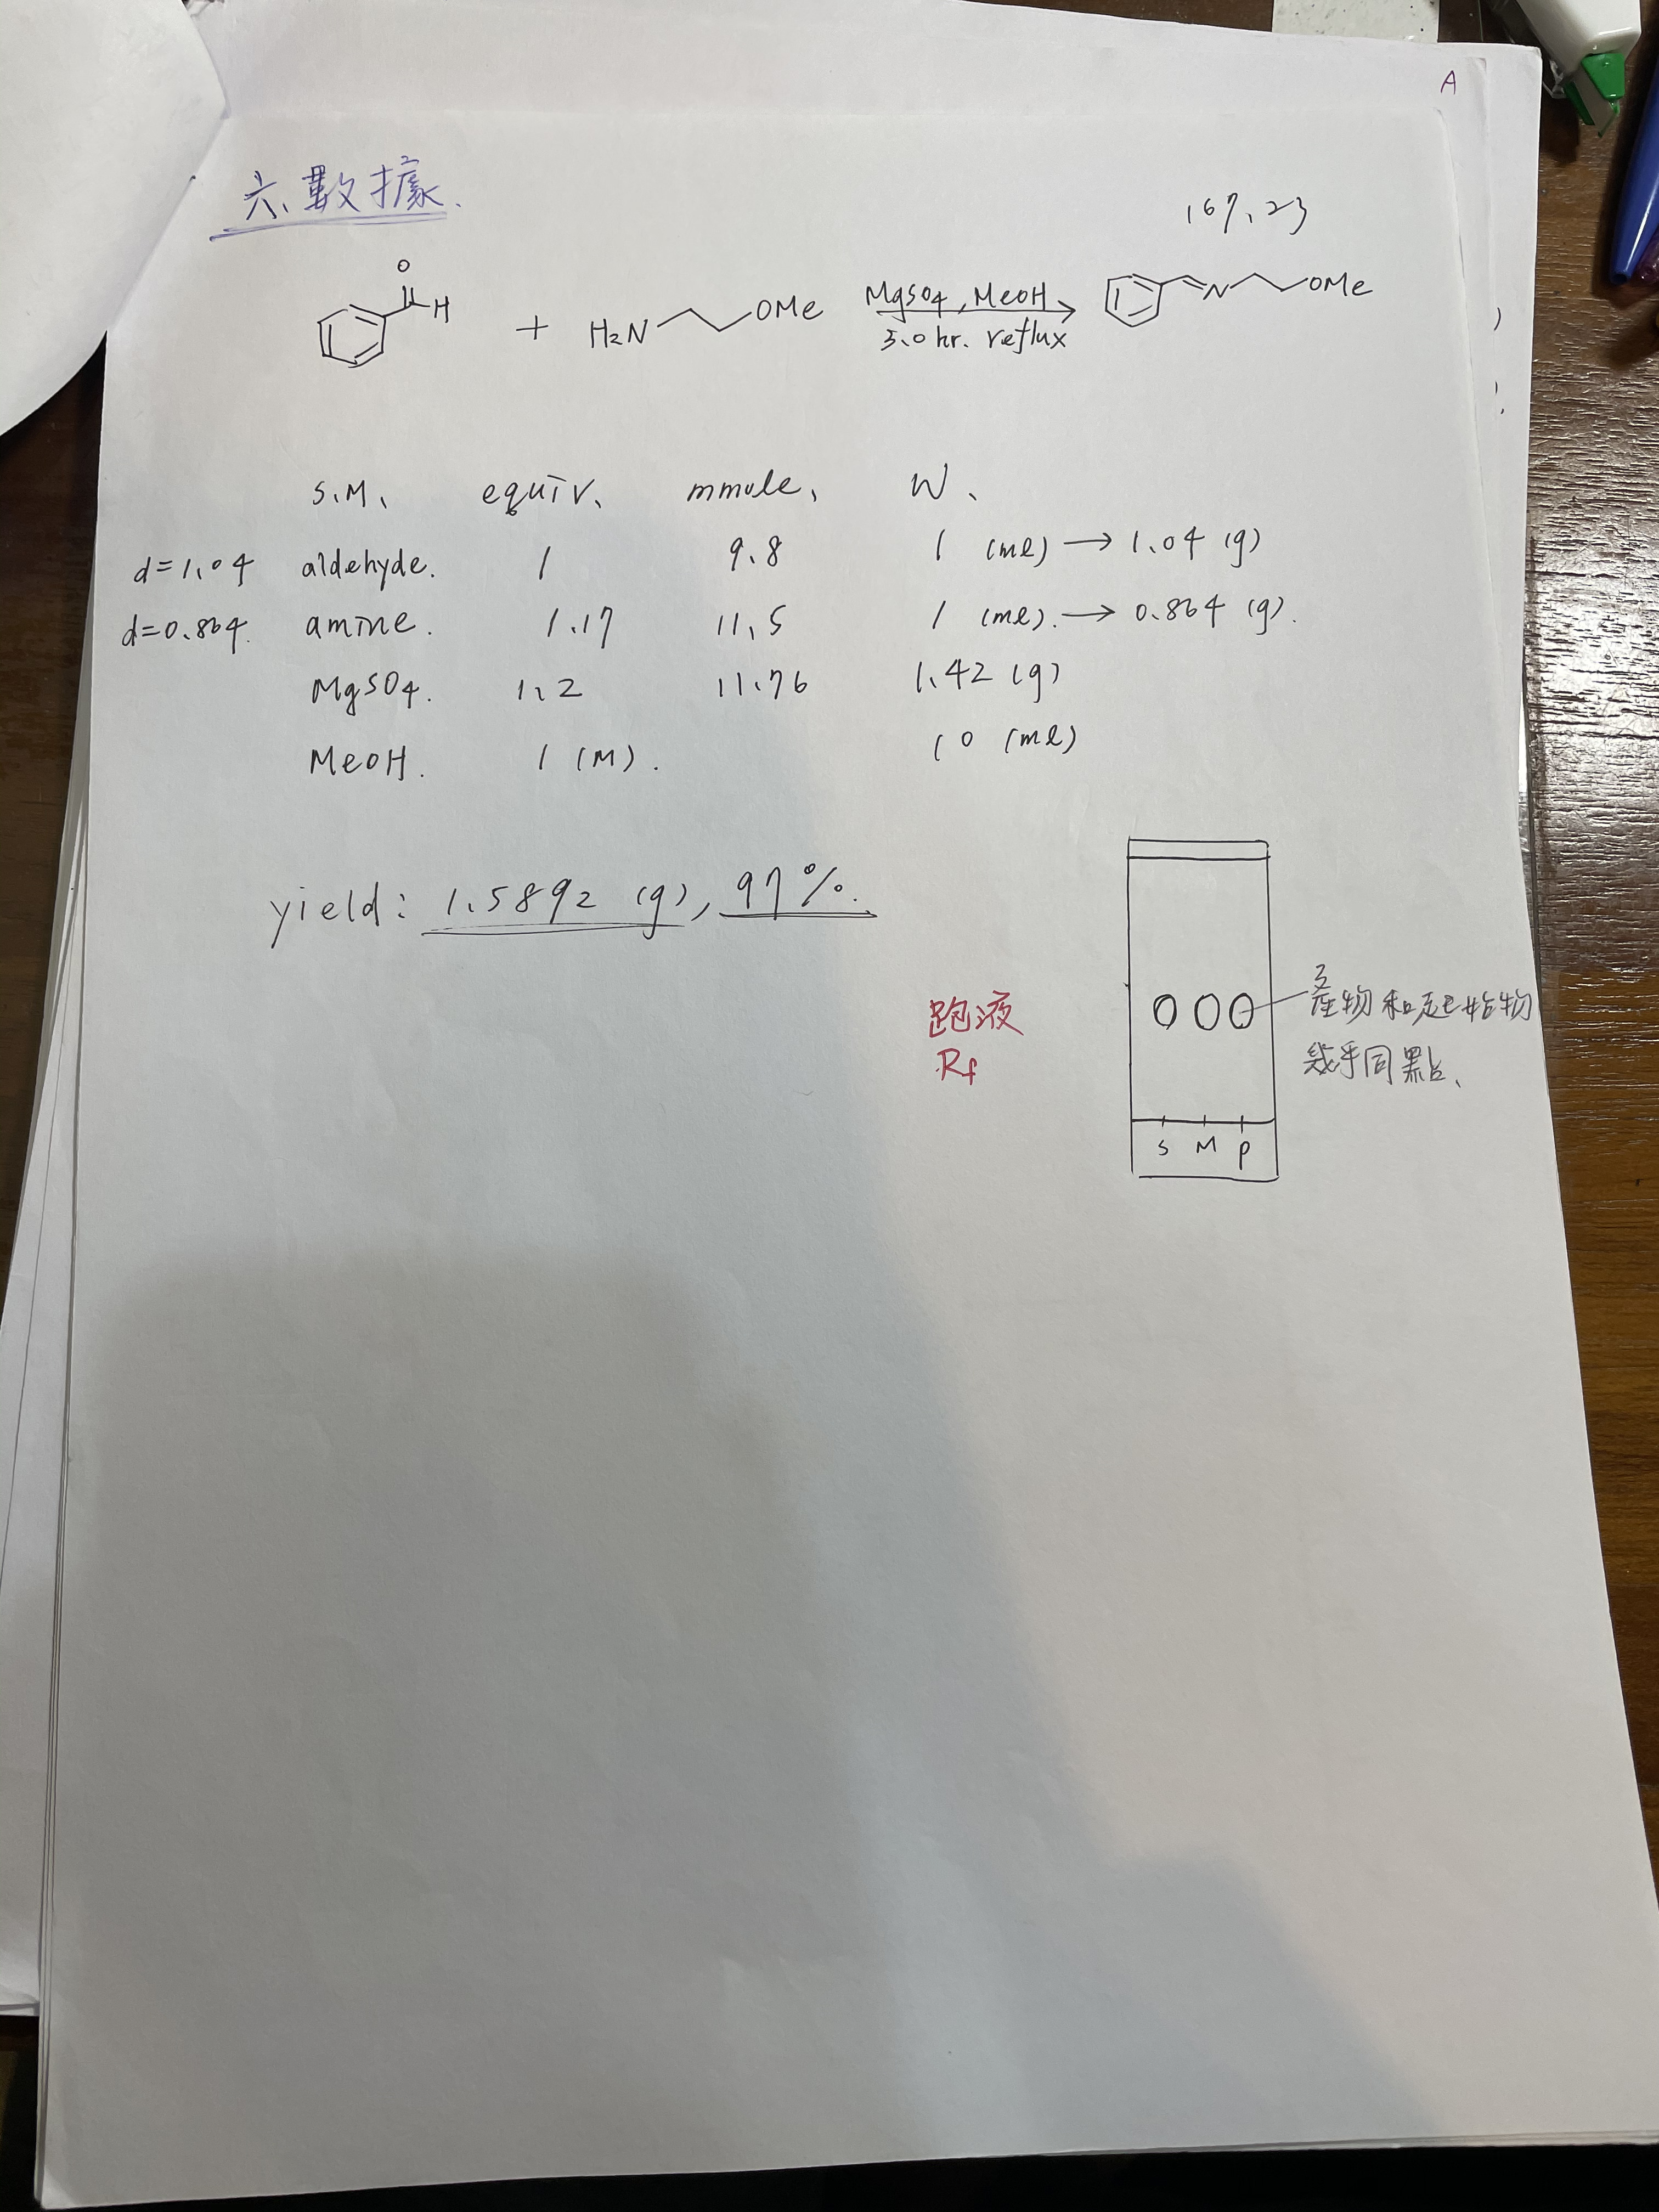 A
六、數據.
167.23
O
H
+ H₂N OMe MgSO₄, MeOH N OMe
3.0 hr. reflux
S.M. equiv. mmole. W.
d=1.04 aldehyde. 1 9.8 1 (ml) → 1.04 (g)
d=0.864. amine. 1.17 11.5 1 (ml). → 0.864 (g).
MgSO₄. 1.2 11.76 1.42 (g)
MeOH. 1 (M). 10 (ml)
yield: 1.5892 (g), 97%.
跑液
Rf
產物和起始物
幾乎同點.
S M P